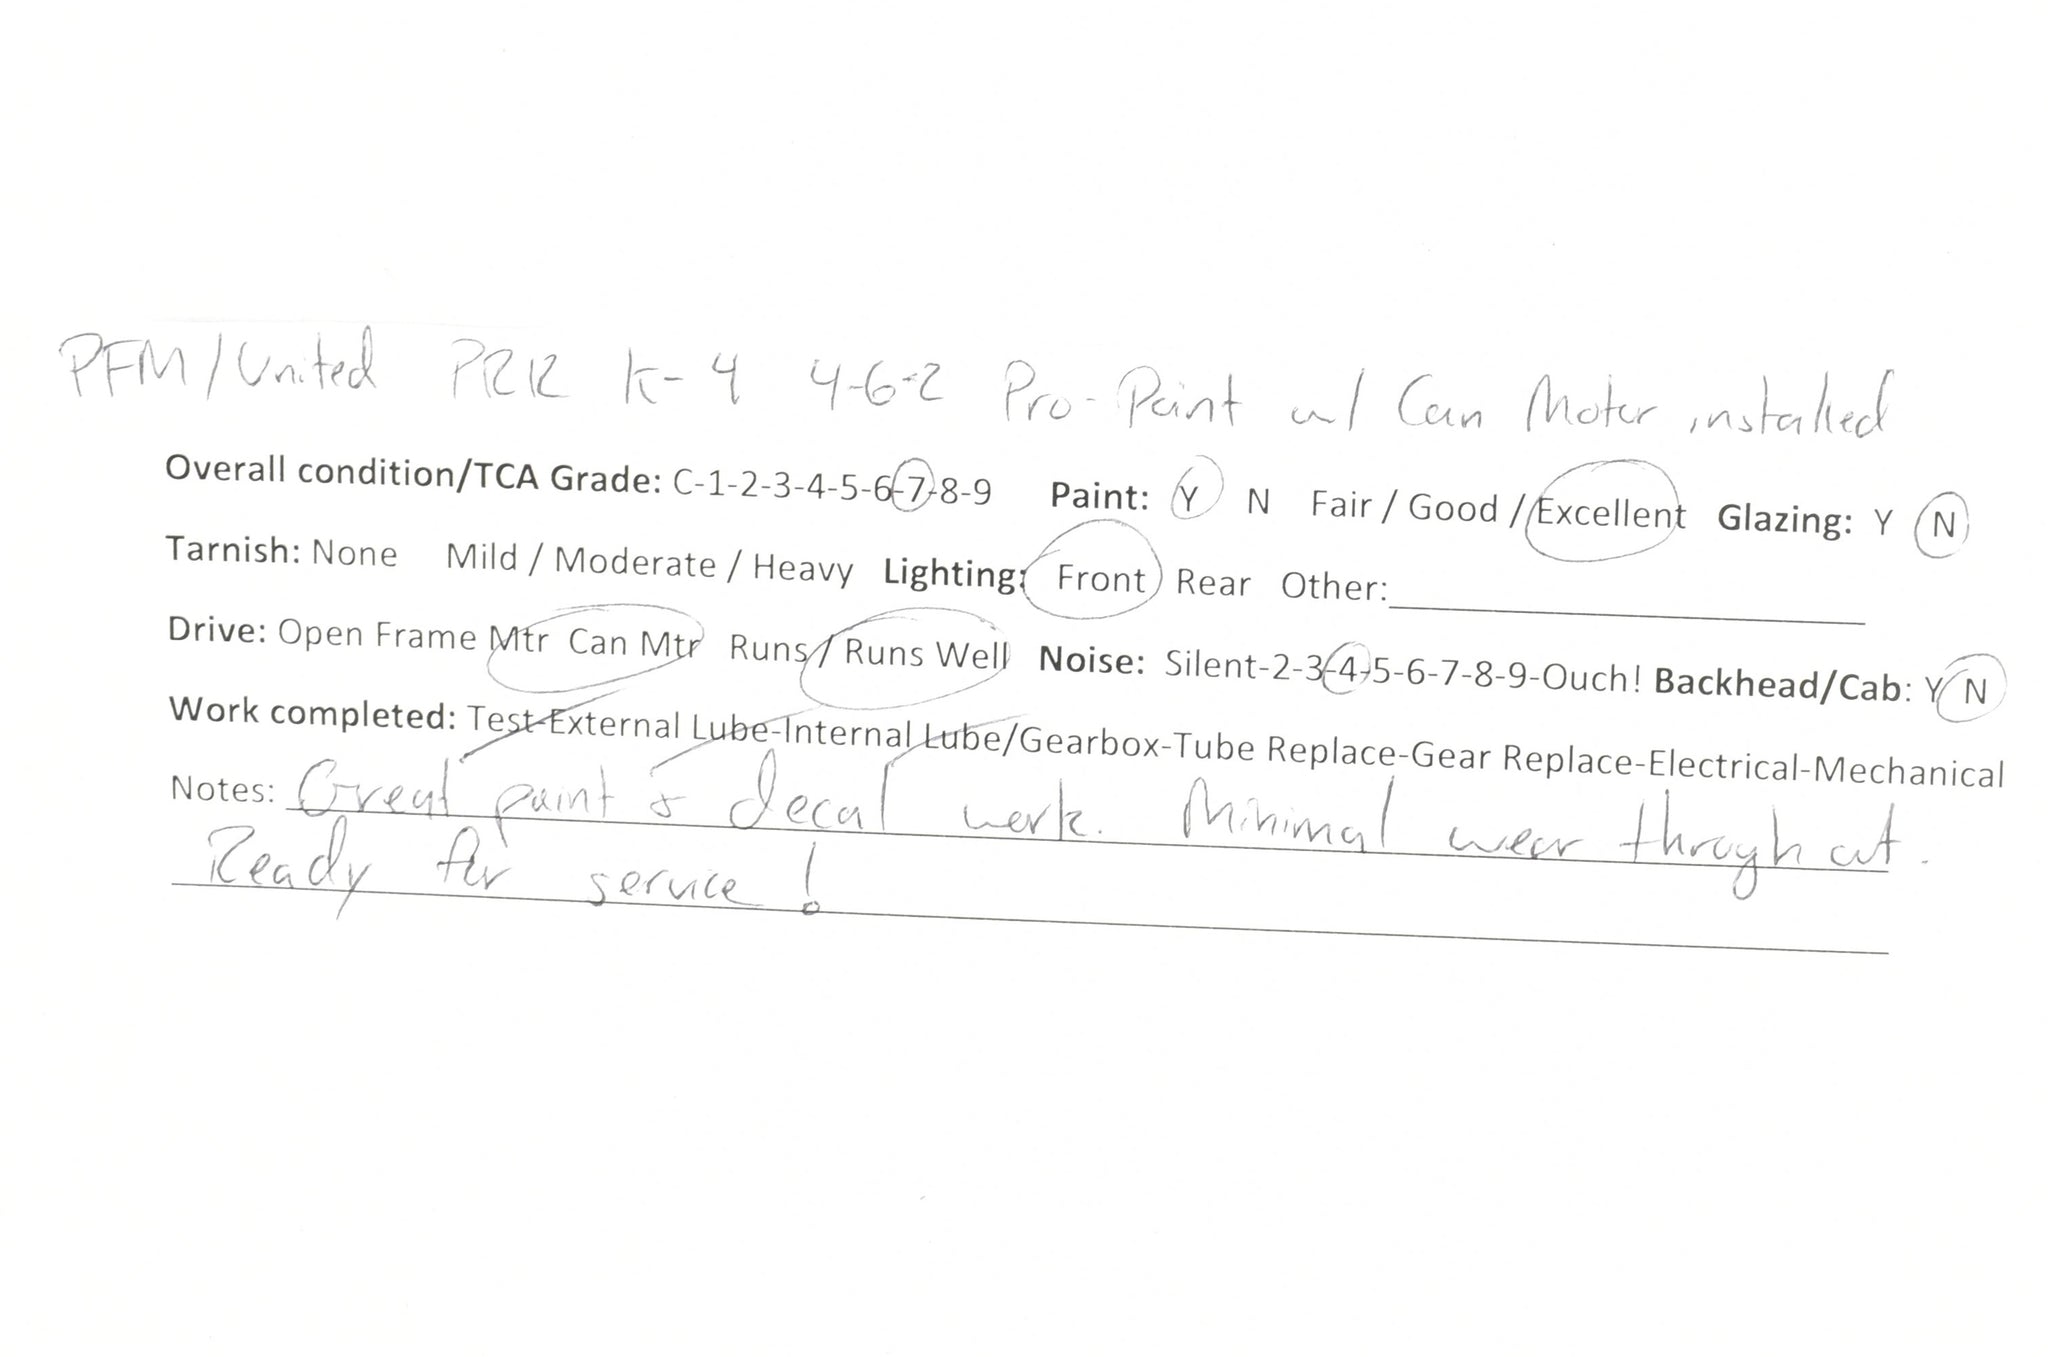 PFM/United PRR K-4 4-6-2 Pro-Paint w/ Can Motor installed
Overall condition/TCA Grade: C-1-2-3-4-5-6-7-8-9 Paint: Y N Fair / Good / Excellent Glazing: Y N
Tarnish: None Mild / Moderate / Heavy Lighting: Front Rear Other:
Drive: Open Frame Mtr Can Mtr Runs / Runs Well Noise: Silent-2-3-4-5-6-7-8-9-Ouch! Backhead/Cab: Y N
Work completed: Test-External Lube-Internal Lube/Gearbox-Tube Replace-Gear Replace-Electrical-Mechanical
Notes: Great paint & decal work. Minimal wear throughout.
Ready for service!